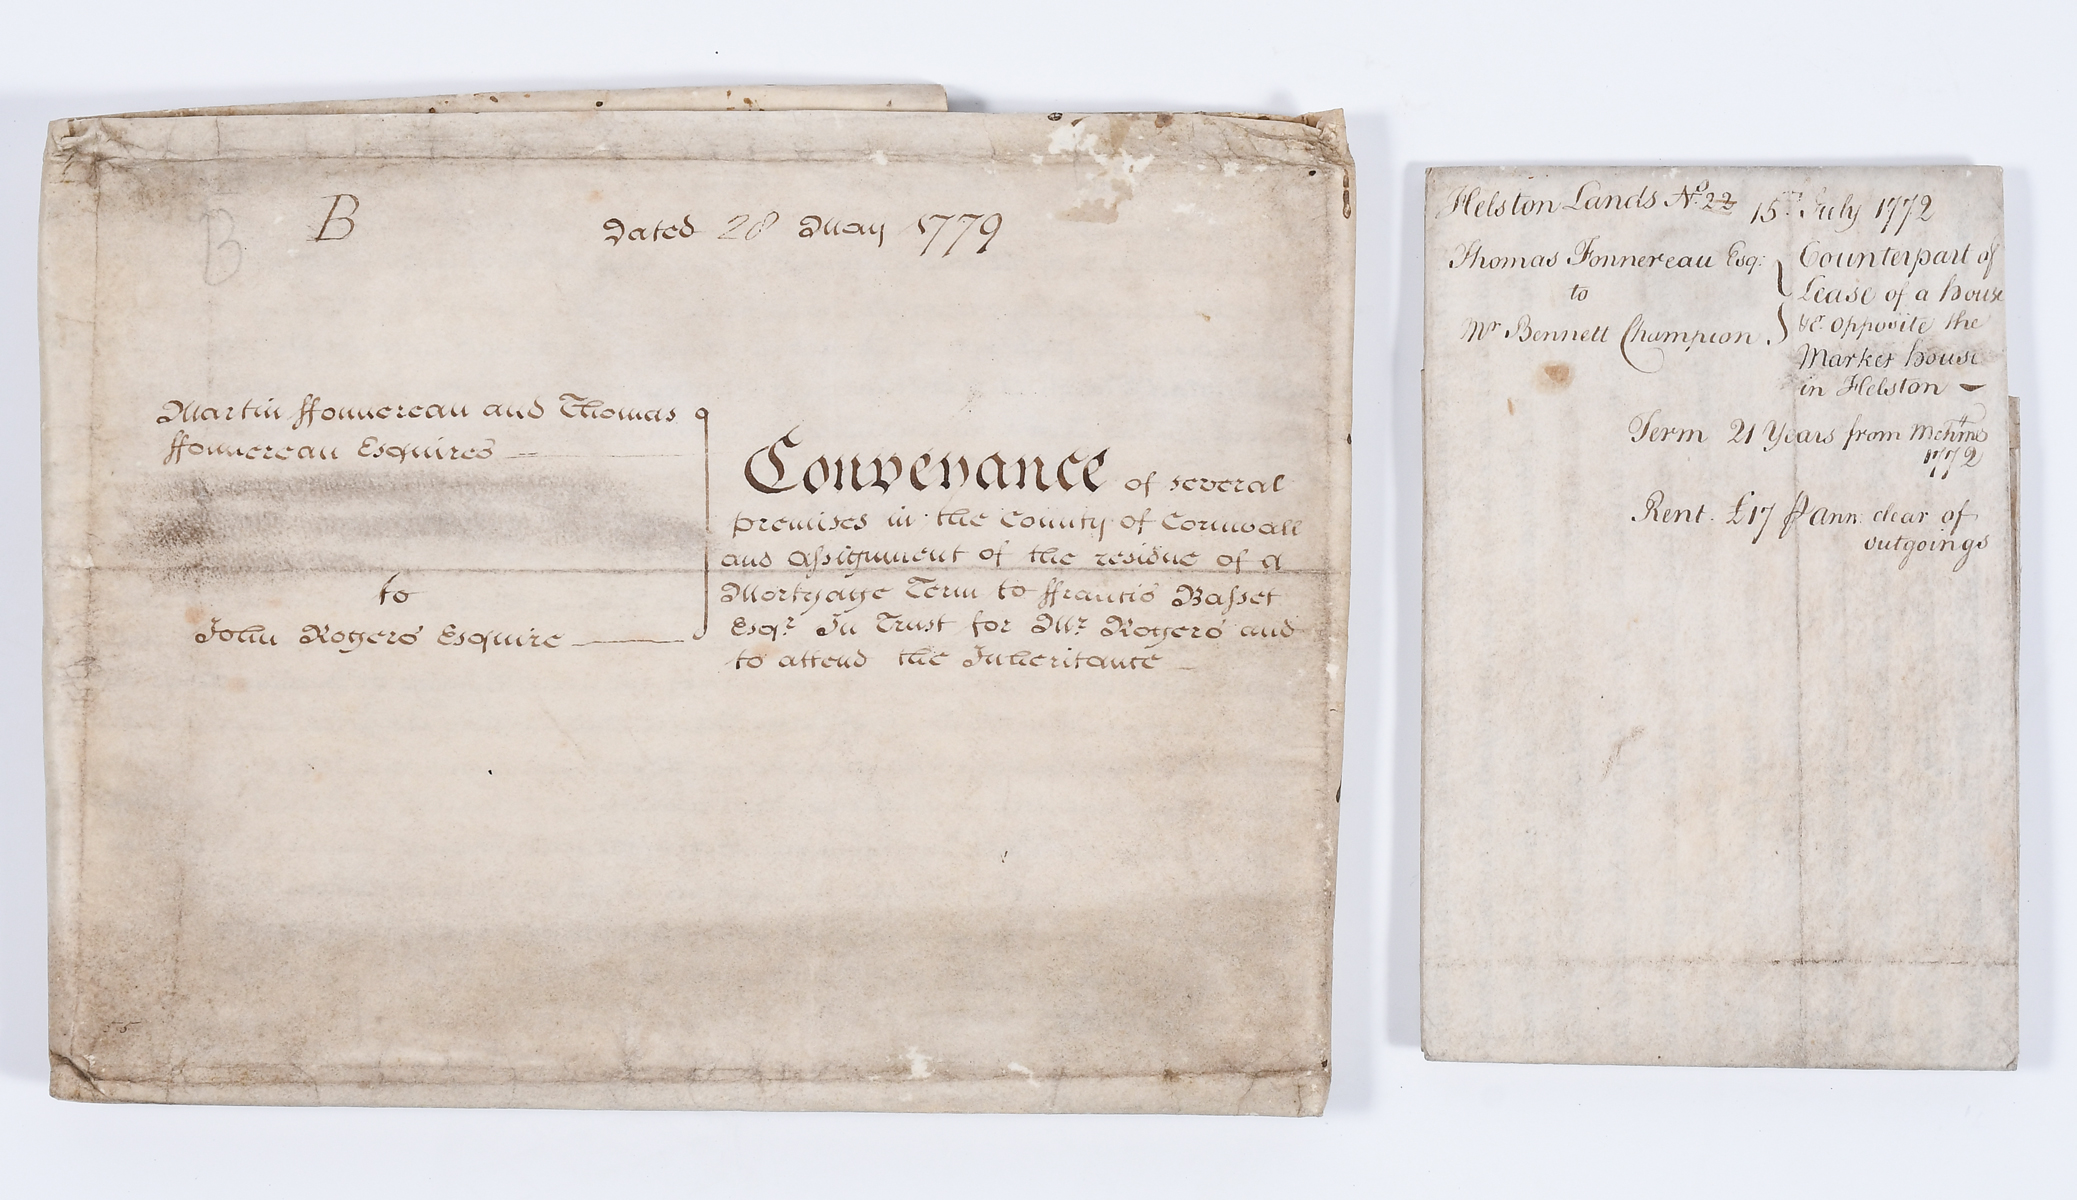 B
B Dated 28 May 1779
Martin ffonnereau and Thomas
ffonnereau Esquires
to
John Rogers Esquire
Conveyance of several
premises in the County of Cornwall
and Assignment of the residue of a
Mortgage Term to ffrancis Basset
Esqr. In Trust for Mr. Rogers and
to attend the Inheritance
Helston Lands No. 22 15th July 1772
Thomas Fonnereau Esq:
to
Mr Bennett Champion
Counterpart of
Lease of a house
&c. opposite the
Market house
in Helston
Term 21 Years from Mchms
1772
Rent. £17 ⅌ Ann. clear of
outgoings